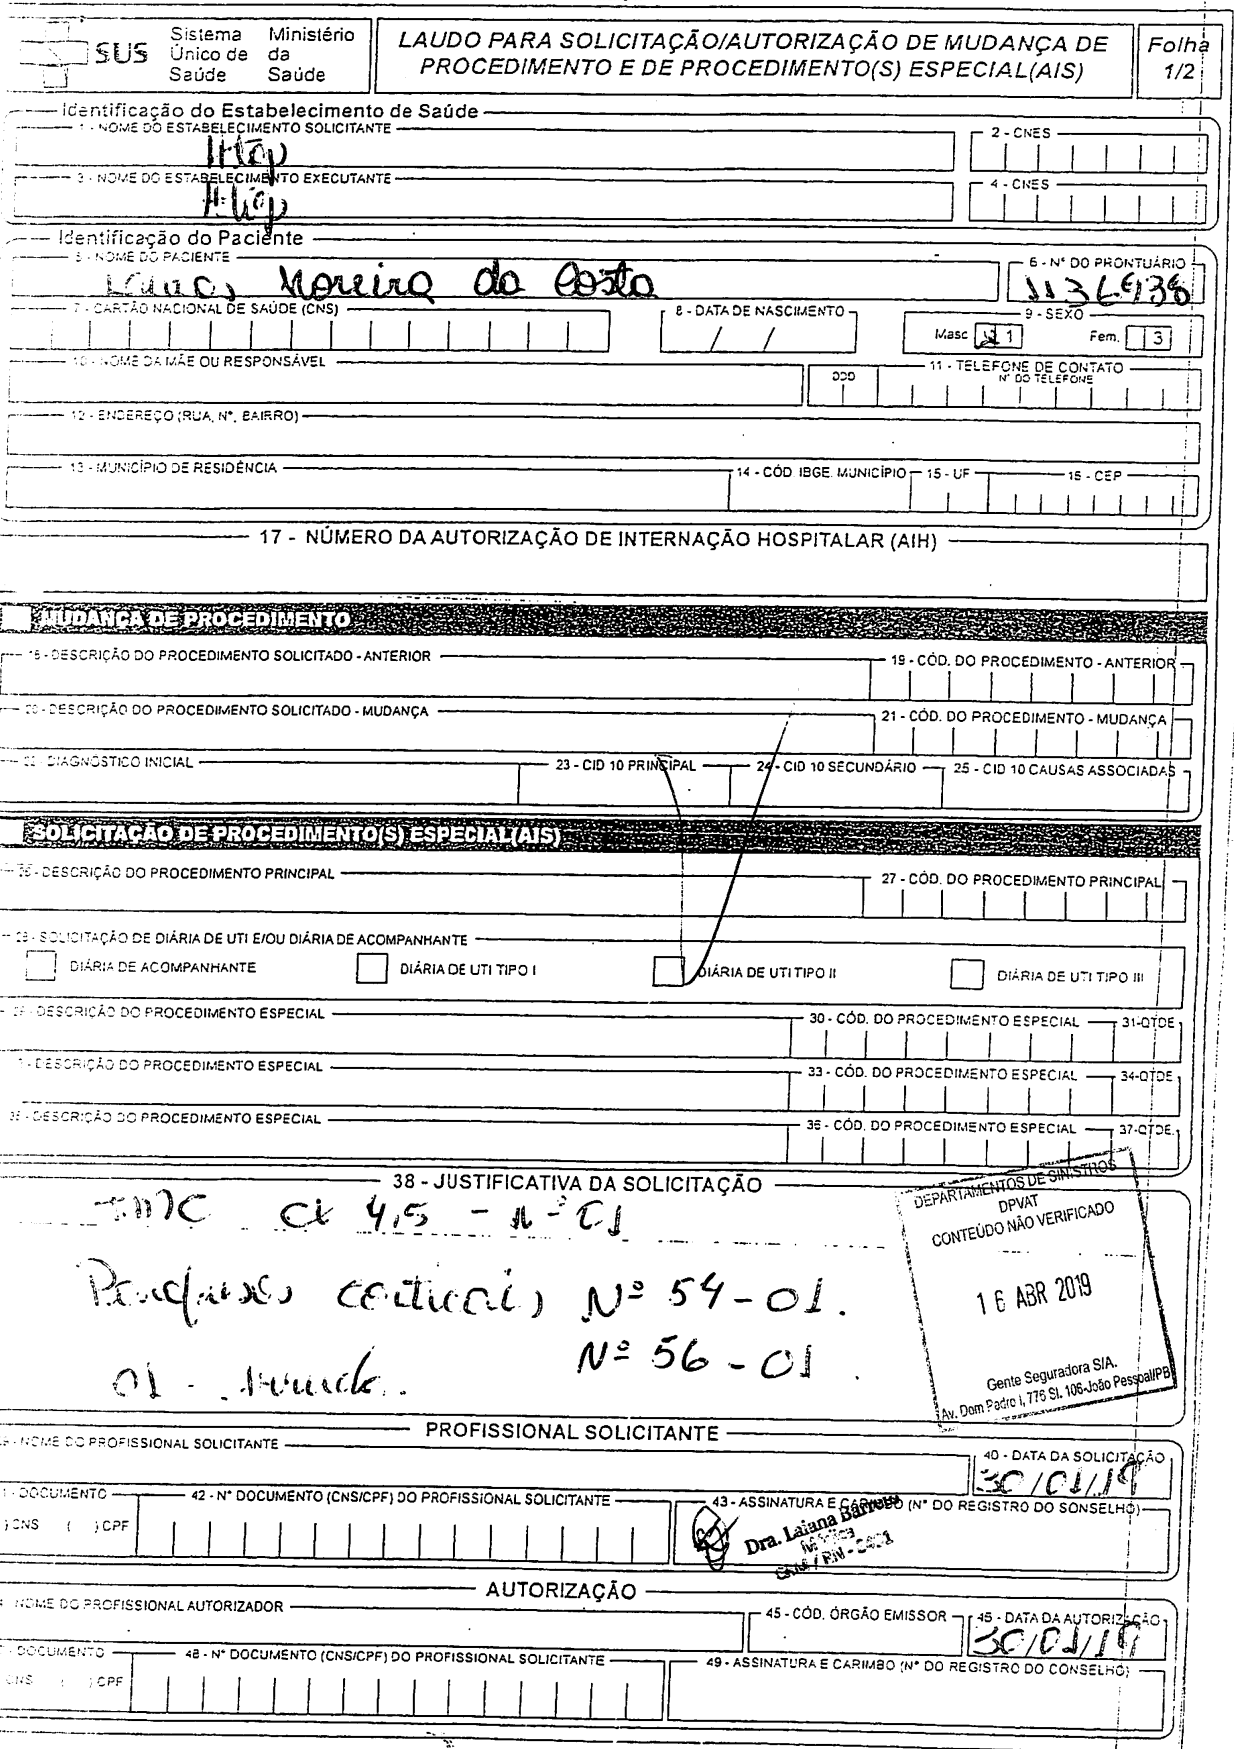 SUS Sistema Único de Saúde Ministério da Saúde
LAUDO PARA SOLICITAÇÃO/AUTORIZAÇÃO DE MUDANÇA DE PROCEDIMENTO E DE PROCEDIMENTO(S) ESPECIAL(AIS)
Folha 1/2
Identificação do Estabelecimento de Saúde
1 - NOME DO ESTABELECIMENTO SOLICITANTE
2 - CNES
3 - NOME DO ESTABELECIMENTO EXECUTANTE
4 - CNES
Identificação do Paciente
5 - NOME DO PACIENTE
Moreira da Costa
6 - N° DO PRONTUÁRIO
7 - CARTÃO NACIONAL DE SAÚDE (CNS)
8 - DATA DE NASCIMENTO
/ /
9 - SEXO
Masc 1 Fem. 3
10 - NOME DA MÃE OU RESPONSÁVEL
11 - TELEFONE DE CONTATO
DDD N° DO TELEFONE
12 - ENDEREÇO (RUA, N°, BAIRRO)
13 - MUNICÍPIO DE RESIDÊNCIA
14 - CÓD. IBGE. MUNICÍPIO
15 - UF
16 - CEP
17 - NÚMERO DA AUTORIZAÇÃO DE INTERNAÇÃO HOSPITALAR (AIH)
MUDANÇA DE PROCEDIMENTO
18 - DESCRIÇÃO DO PROCEDIMENTO SOLICITADO - ANTERIOR
19 - CÓD. DO PROCEDIMENTO - ANTERIOR
20 - DESCRIÇÃO DO PROCEDIMENTO SOLICITADO - MUDANÇA
21 - CÓD. DO PROCEDIMENTO - MUDANÇA
22 - DIAGNÓSTICO INICIAL
23 - CID 10 PRINCIPAL
24 - CID 10 SECUNDÁRIO
25 - CID 10 CAUSAS ASSOCIADAS
SOLICITAÇÃO DE PROCEDIMENTO(S) ESPECIAL(AIS)
26 - DESCRIÇÃO DO PROCEDIMENTO PRINCIPAL
27 - CÓD. DO PROCEDIMENTO PRINCIPAL
28 - SOLICITAÇÃO DE DIÁRIA DE UTI E/OU DIÁRIA DE ACOMPANHANTE
DIÁRIA DE ACOMPANHANTE
DIÁRIA DE UTI TIPO I
DIÁRIA DE UTI TIPO II
DIÁRIA DE UTI TIPO III
DESCRIÇÃO DO PROCEDIMENTO ESPECIAL
30 - CÓD. DO PROCEDIMENTO ESPECIAL
31-QTDE
DESCRIÇÃO DO PROCEDIMENTO ESPECIAL
33 - CÓD. DO PROCEDIMENTO ESPECIAL
34-QTDE
DESCRIÇÃO DO PROCEDIMENTO ESPECIAL
36 - CÓD. DO PROCEDIMENTO ESPECIAL
37-QTDE.
38 - JUSTIFICATIVA DA SOLICITAÇÃO
4,5
corticais Nº 54 - 01.
Nº 56 - 01
01 -
DEPARTAMENTOS DE SINISTROS
DPVAT
CONTEÚDO NÃO VERIFICADO
16 ABR 2019
Gente Seguradora S/A.
Av. Dom Pedro I, 776 Sl. 106-João Pessoa/PB
PROFISSIONAL SOLICITANTE
NOME DO PROFISSIONAL SOLICITANTE
40 - DATA DA SOLICITAÇÃO
30/01/19
DOCUMENTO
) CNS ( ) CPF
42 - N° DOCUMENTO (CNS/CPF) DO PROFISSIONAL SOLICITANTE
43 - ASSINATURA E CARIMBO (N° DO REGISTRO DO SONSELHO)
Dra. Laiana Barreto
Médica
CRM / RN -
AUTORIZAÇÃO
NOME DO PROFISSIONAL AUTORIZADOR
45 - CÓD. ÓRGÃO EMISSOR
46 - DATA DA AUTORIZAÇÃO
30/01/19
DOCUMENTO
CNS ( ) CPF
48 - N° DOCUMENTO (CNS/CPF) DO PROFISSIONAL SOLICITANTE
49 - ASSINATURA E CARIMBO (N° DO REGISTRO DO CONSELHO)